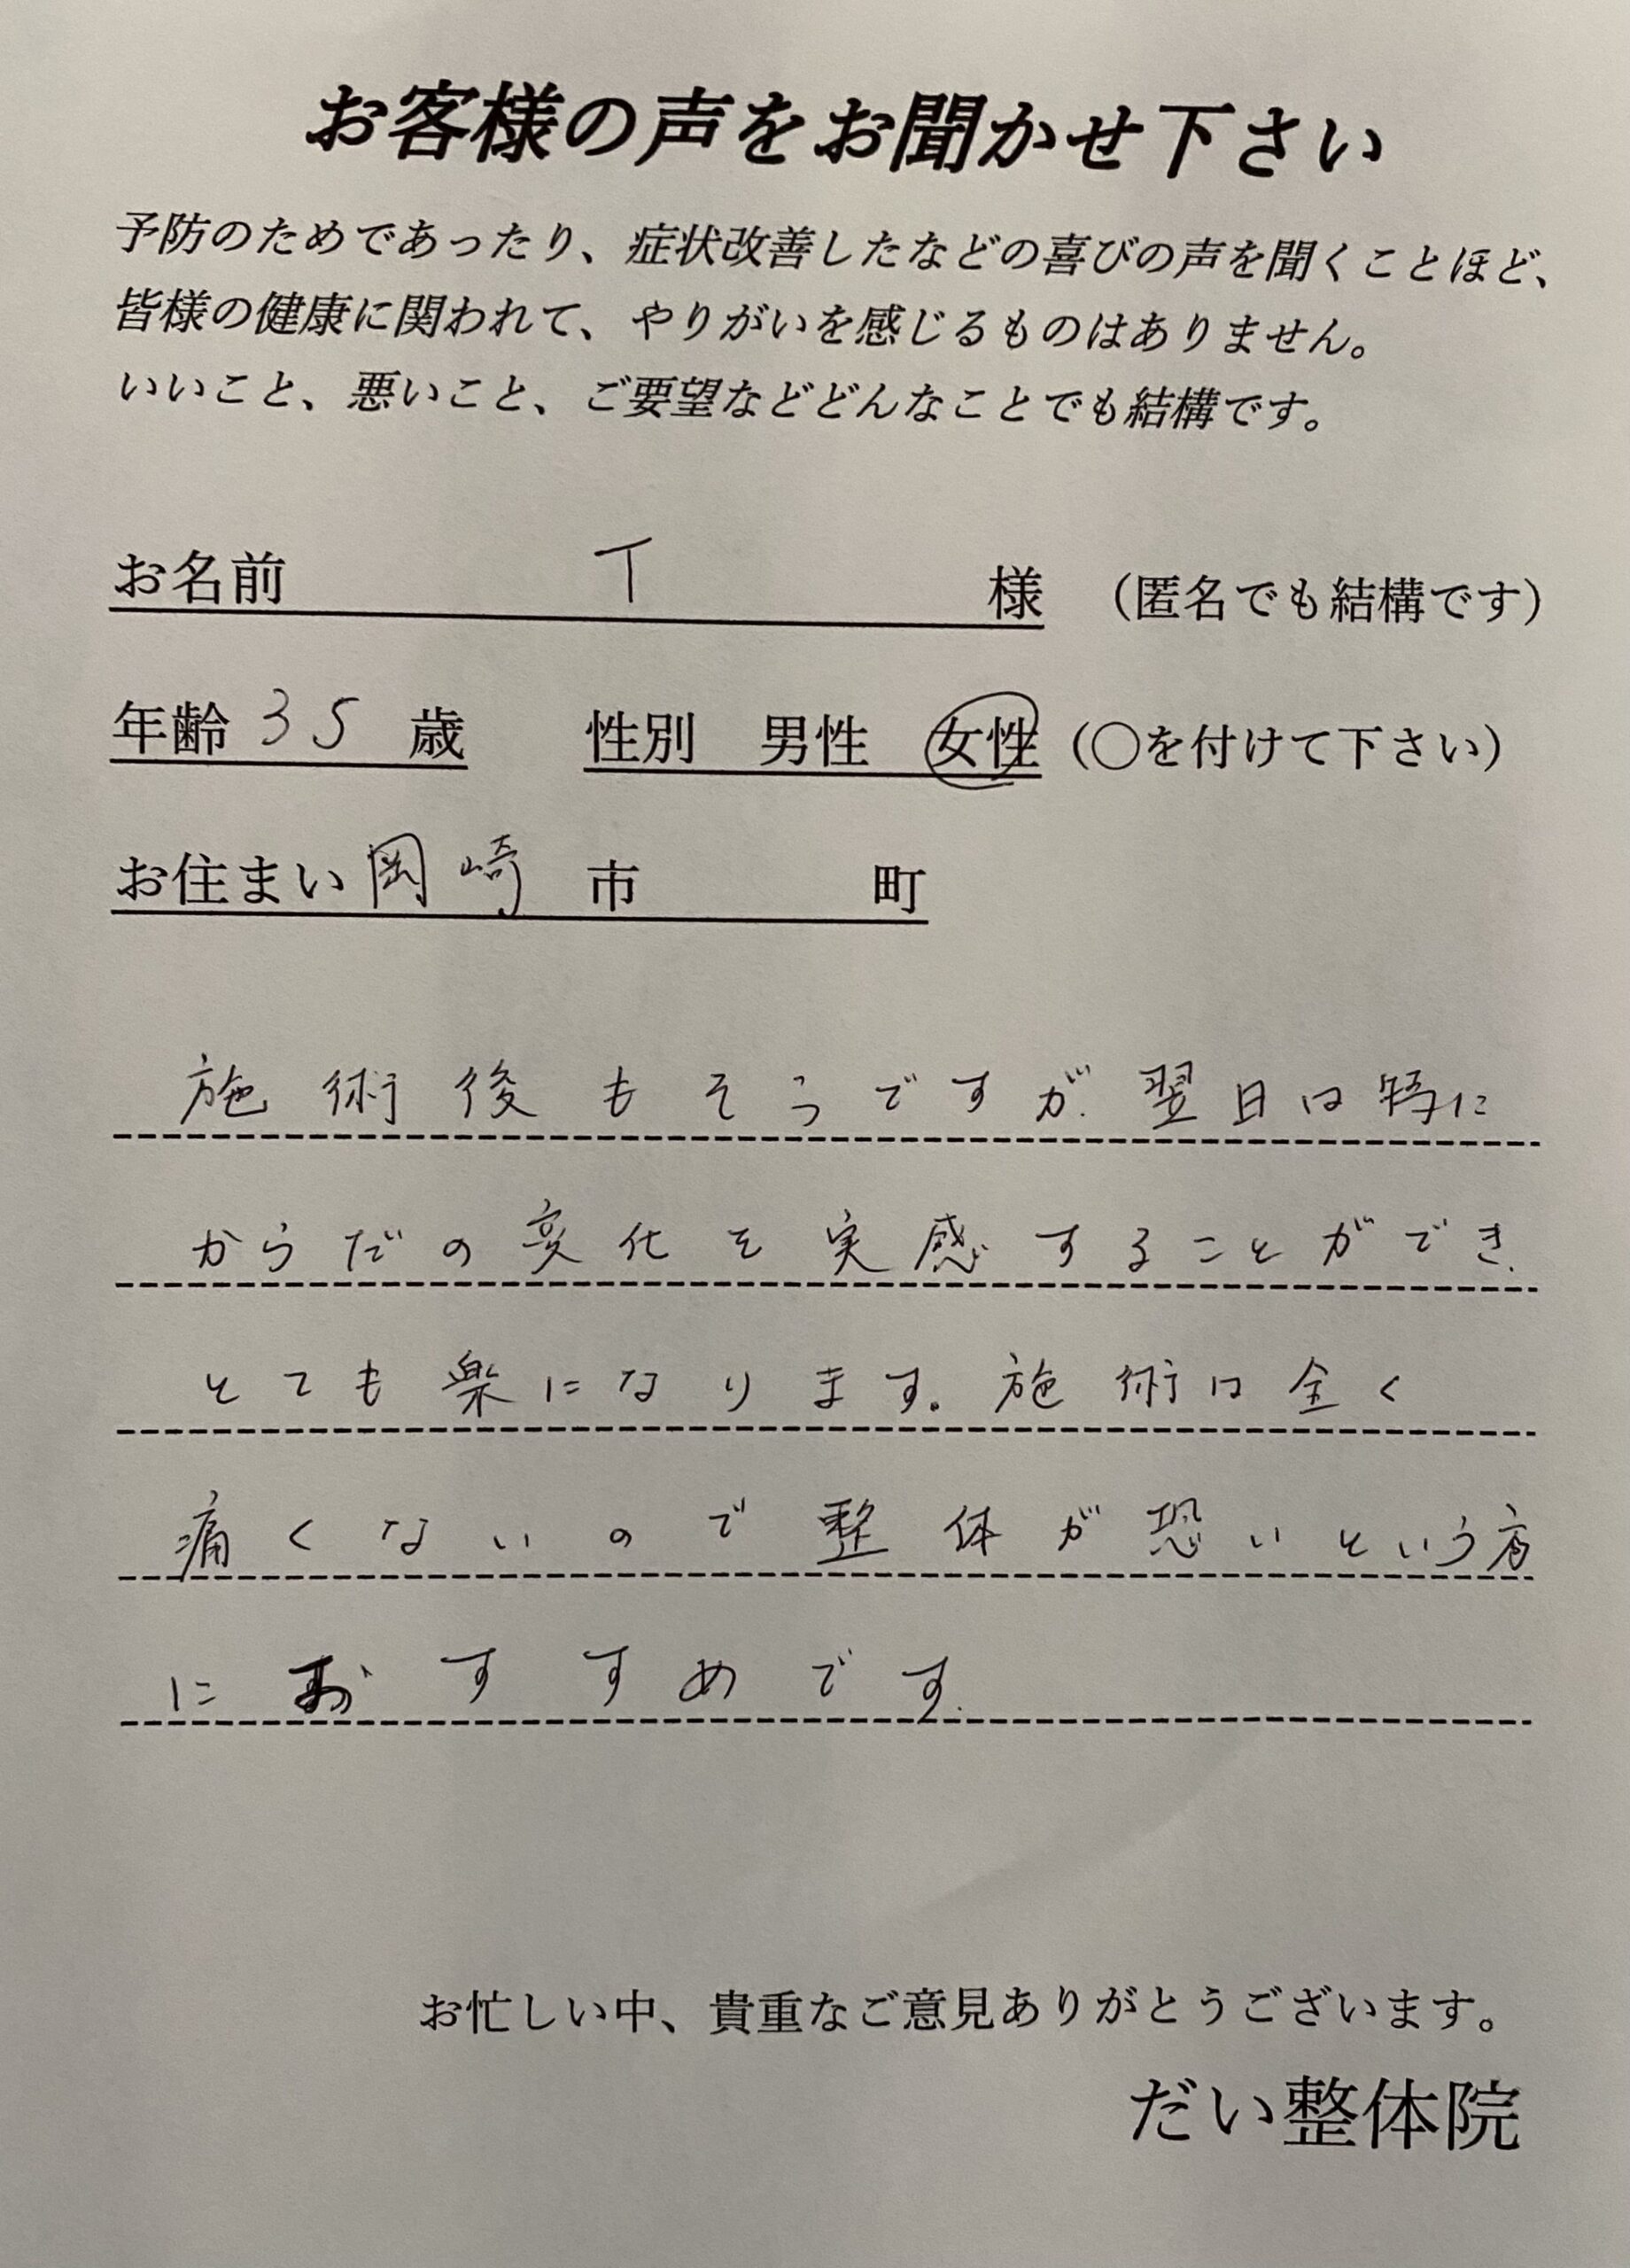 お客様の声をお聞かせ下さい
予防のためであったり、症状改善したなどの喜びの声を聞くことほど、
皆様の健康に関われて、やりがいを感じるものはありません。
いいこと、悪いこと、ご要望などどんなことでも結構です。
お名前 T 様 （匿名でも結構です）
年齢 35 歳 性別 男性 女性 （〇を付けて下さい）
お住まい 岡崎 市 町
施術後もそうですが、翌日は特に
からだの変化を実感することができ、
とても楽になります。施術は全く
痛くないので整体が恐いという方
におすすめです。
お忙しい中、貴重なご意見ありがとうございます。
だい整体院